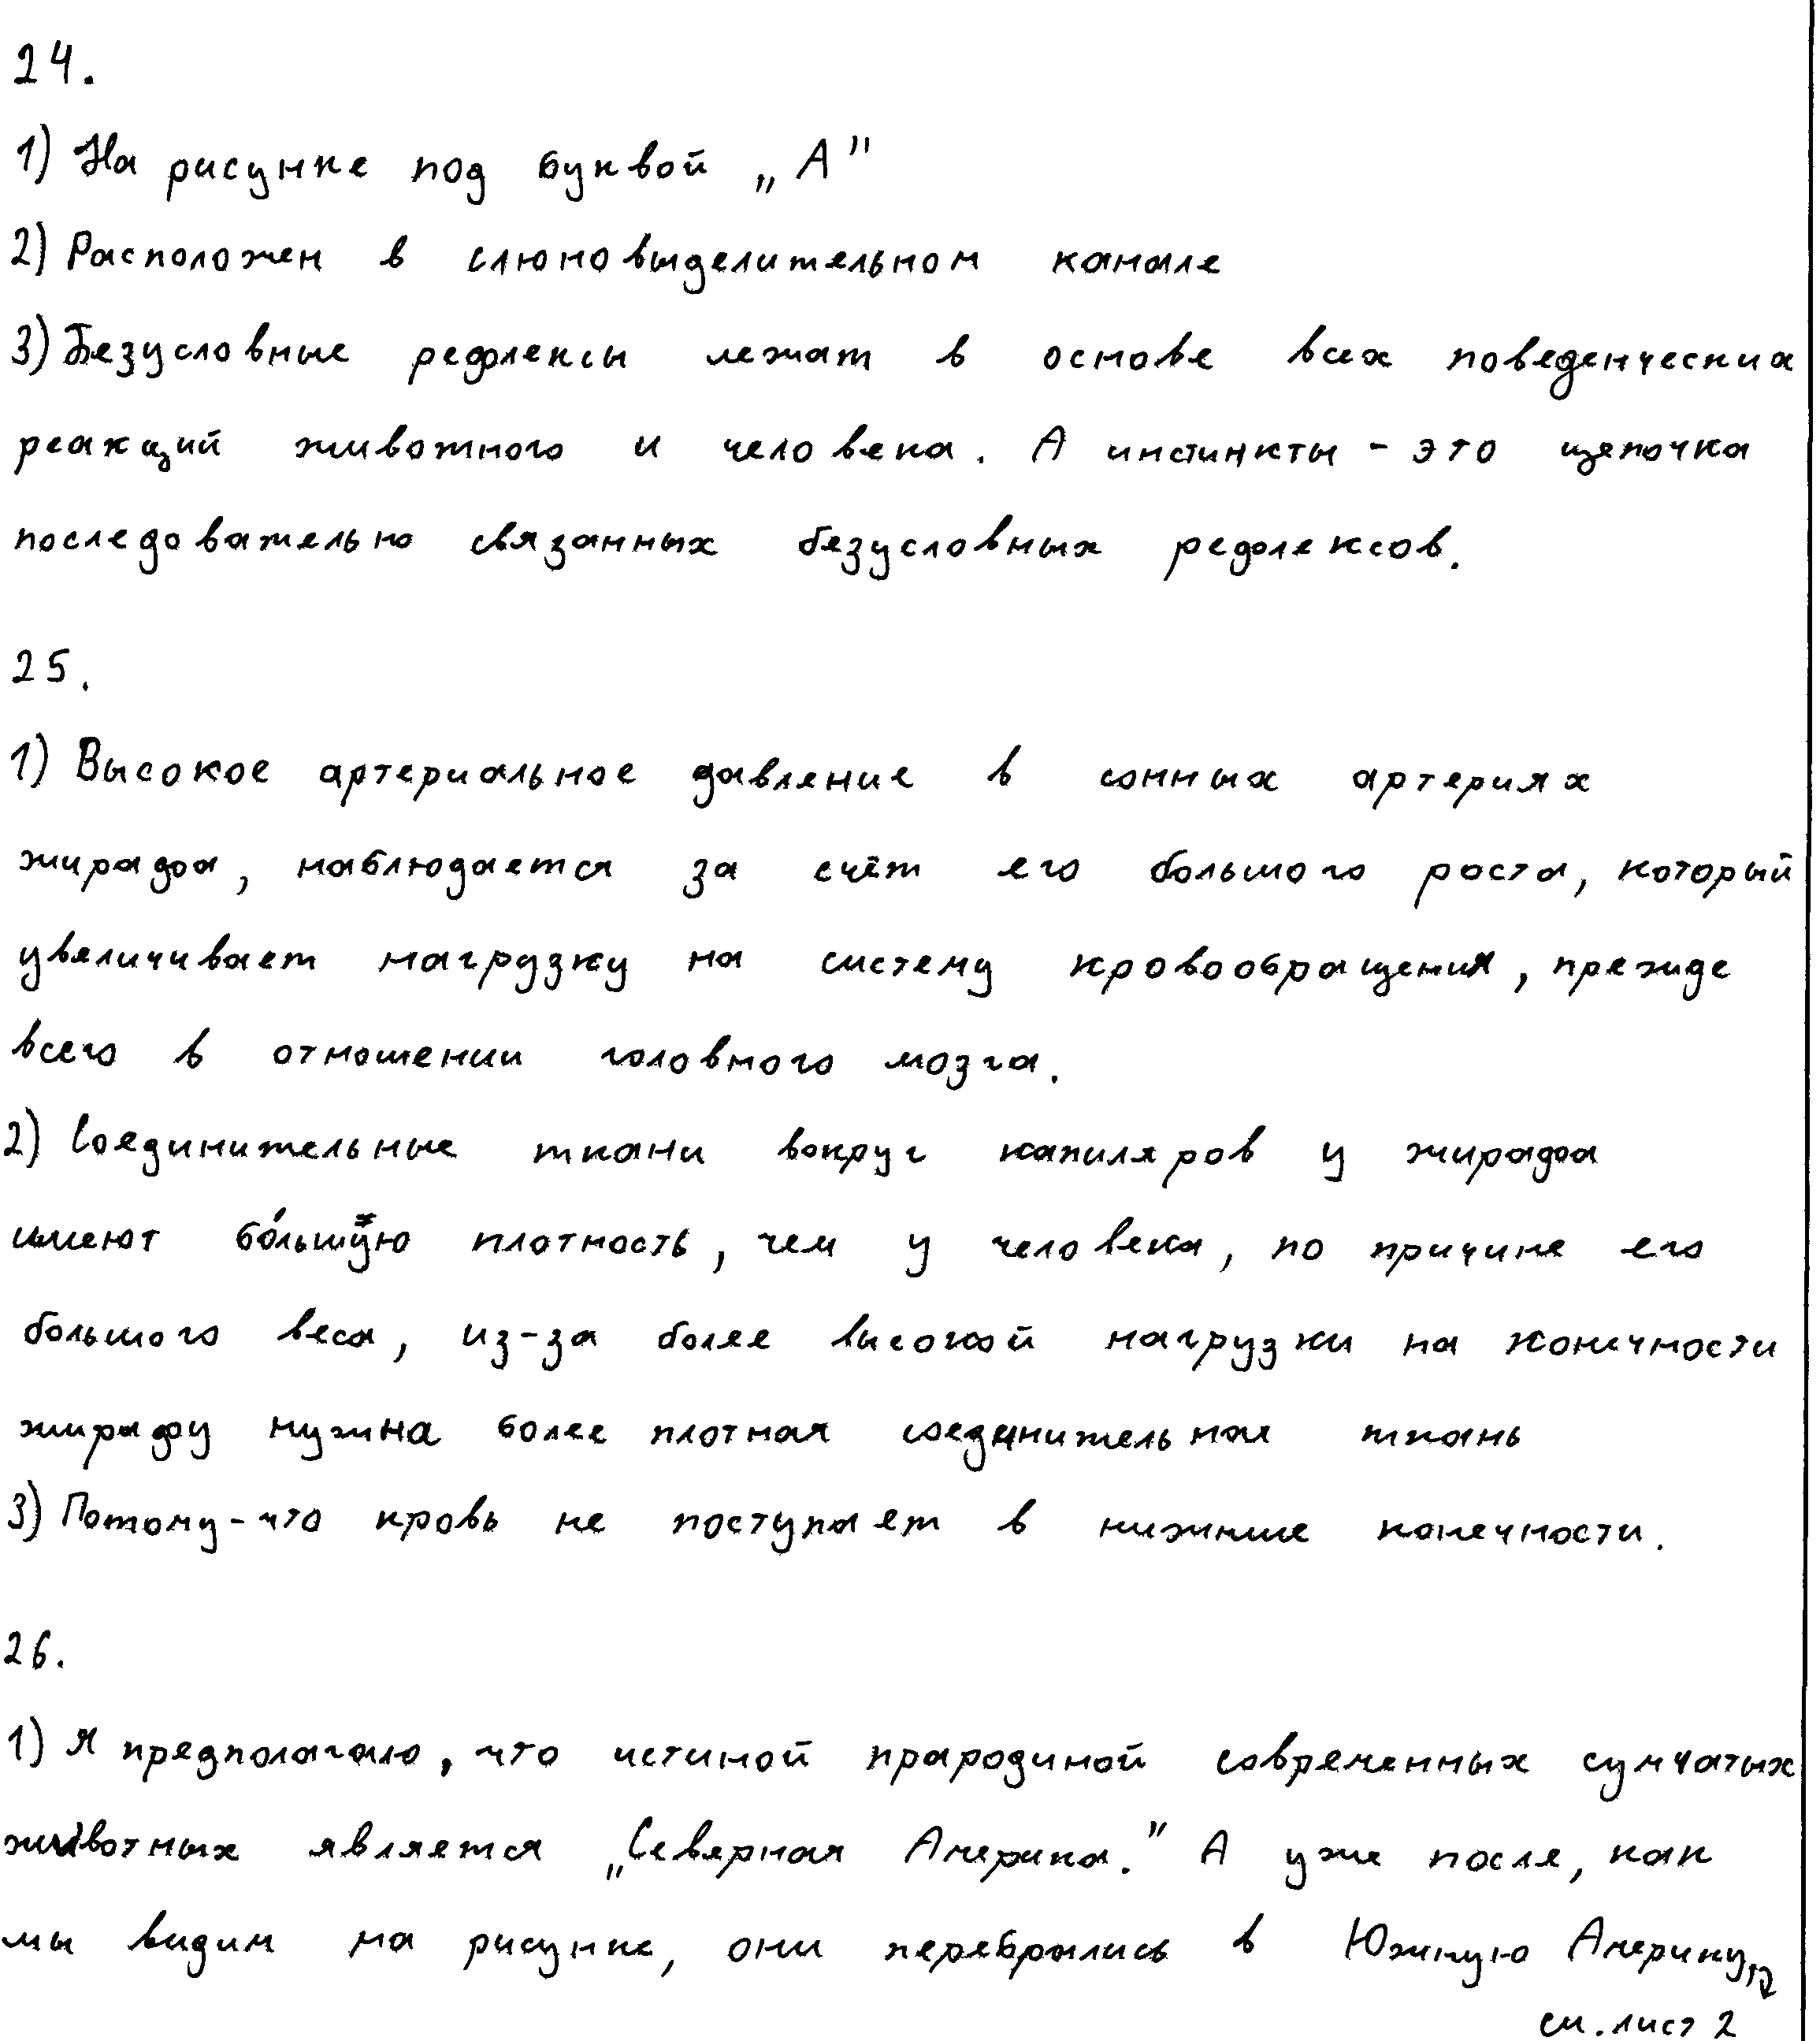 24.
1) На рисунке под буквой „А”
2) Расположен в слюновыделительном канале
3) Безусловные рефлексы лежат в основе всех поведенческих
реакций животного и человека. А инстинкты - это цепочка
последовательно связанных безусловных рефлексов.
25.
1) Высокое артериальное давление в сонных артериях
жирафа, наблюдается за счёт его большого роста, который
увеличивает нагрузку на систему кровообращения, прежде
всего в отношении головного мозга.
2) Соединительные ткани вокруг капиляров у жирафа
имеют бо́льшую плотность, чем у человека, по причине его
большого веса, из-за более высокой нагрузки на конечности
жирафу нужна более плотная соединительная ткань
3) Потому-что кровь не поступает в нижние конечности.
26.
1) Я предполагаю, что истиной прародиной современных сумчатых
животных является „Северная Америка.” А уже после, как
мы видим на рисунке, они перебрались в Южную Америку,
см. лист 2